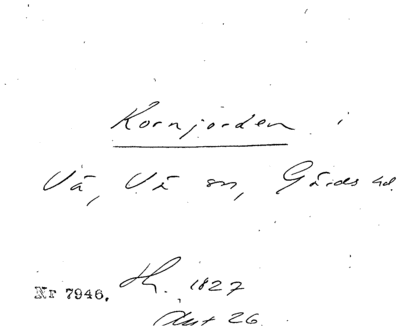 Kornjorden i
Vä, Vä sn, Gärds hd.
Nr 7946. 1827
26